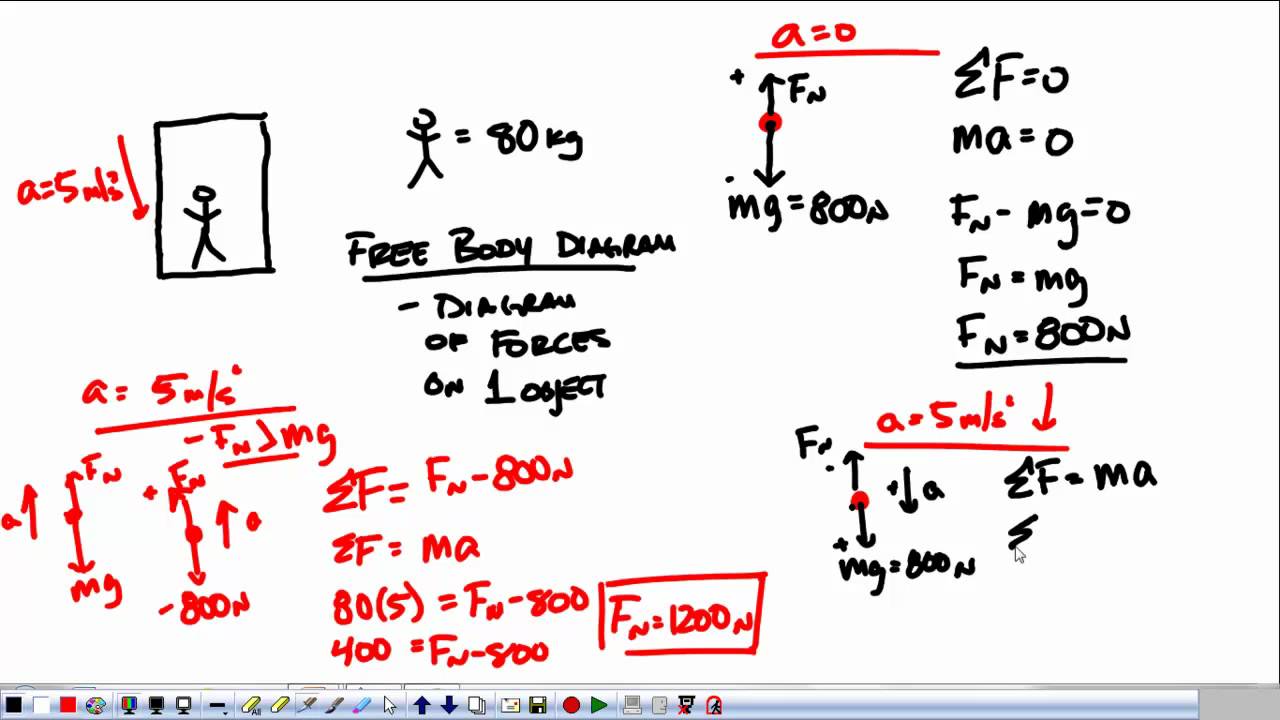 a=5m/s²
= 80kg
FREE BODY DIAGRAM
- DIAGRAM
OF FORCES
ON 1 OBJECT
a=0
+
F_N
-
mg=800N
ΣF=0
ma=0
F_N - mg=0
F_N=mg
F_N=800N
a= 5m/s²
- F_N>mg
a
F_N
mg
+
F_N
a
-800N
ΣF= F_N-800N
ΣF= ma
80(5) = F_N-800
400 =F_N-800
F_N=1200N
a=5m/s²
F_N
-
+
a
+
mg=800N
ΣF=ma
Σ
All